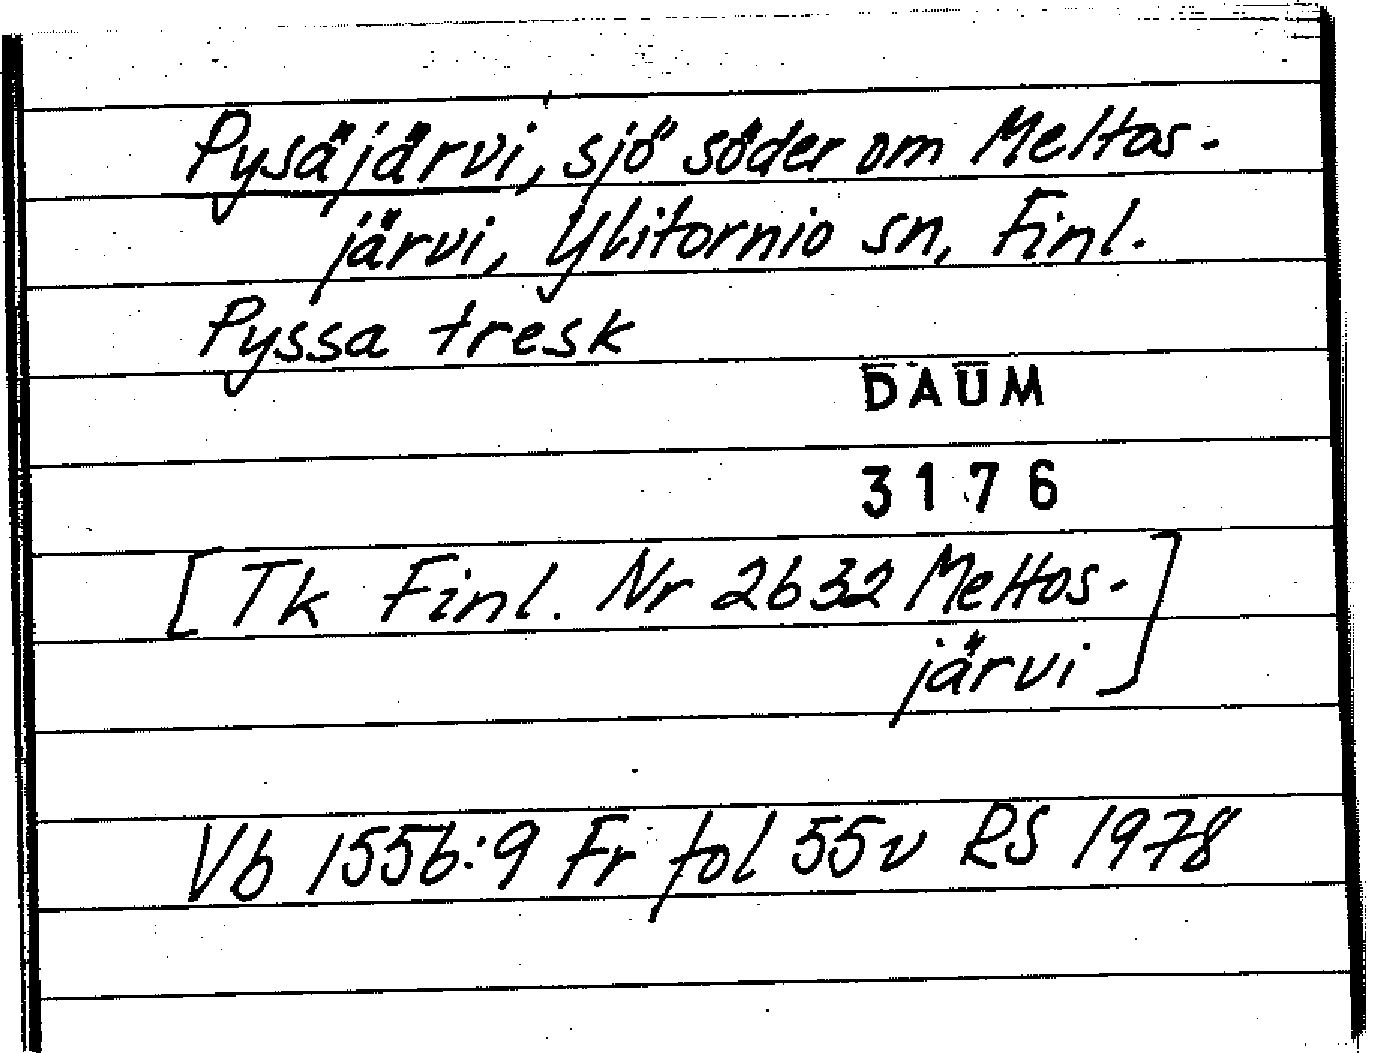 Pysäjärvi, sjö söder om Meltos-
järvi, Ylitornio sn, Finl.
Pyssa tresk
DAUM
3176
[Tk Finl. Nr 2632 Meltos-
järvi]
Vb 1556:9 Fr fol 55v RS 1978